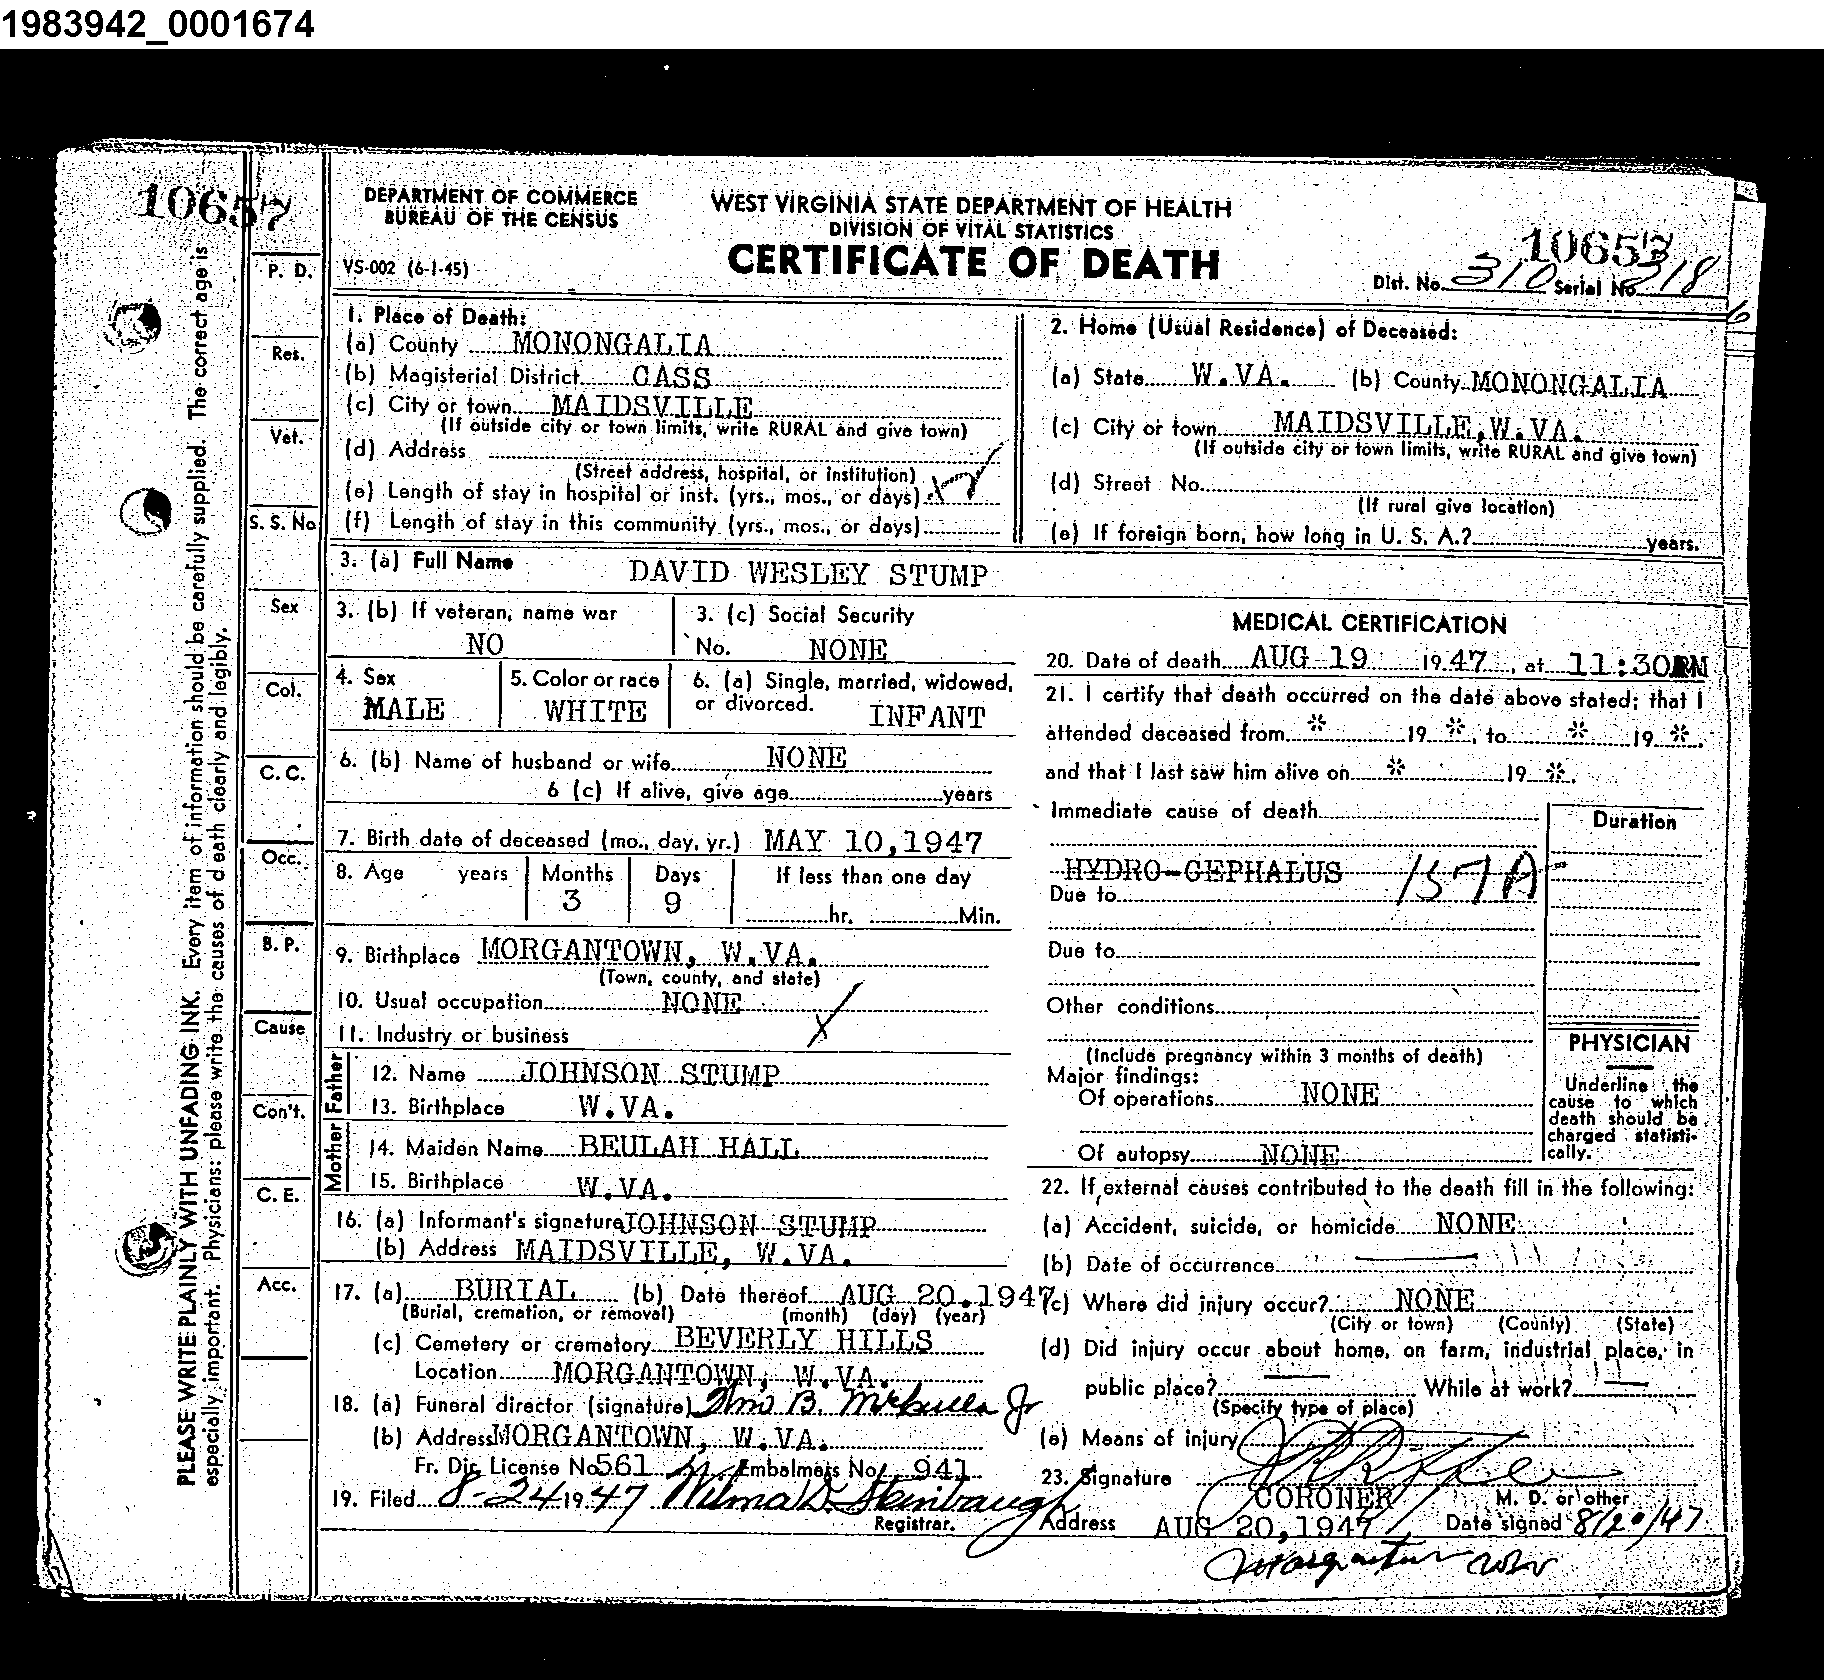 1983942_0001674
10657
DEPARTMENT OF COMMERCE
BUREAU OF THE CENSUS
VS-002 (6-1-45)
WEST VIRGINIA STATE DEPARTMENT OF HEALTH
DIVISION OF VITAL STATISTICS
CERTIFICATE OF DEATH
10657
Dist. No. 310 Serial No. 218
PLEASE WRITE PLAINLY WITH UNFADING INK. Every item of information should be carefully supplied. The correct age is
especially important. Physicians: please write the causes of death clearly and legibly.
P. D.
Res.
Vet.
S. S. No
Sex
Col.
C. C.
Occ.
B. P.
Cause
Con't.
C. E.
Acc.
1. Place of Death:
(a) County MONONGALIA
(b) Magisterial District CASS
(c) City or town MAIDSVILLE
(If outside city or town limits, write RURAL and give town)
(d) Address
(Street address, hospital, or institution)
(e) Length of stay in hospital or inst. (yrs., mos., or days)
(f) Length of stay in this community (yrs., mos., or days)
2. Home (Usual Residence) of Deceased:
(a) State W.VA. (b) County MONONGALIA
(c) City or town MAIDSVILLE, W.VA.
(If outside city or town limits, write RURAL and give town)
(d) Street No.
(If rural give location)
(e) If foreign born, how long in U. S. A.? years.
3. (a) Full Name DAVID WESLEY STUMP
3. (b) If veteran, name war
NO
3. (c) Social Security
No. NONE
4. Sex
MALE
5. Color or race
WHITE
6. (a) Single, married, widowed,
or divorced. INFANT
6. (b) Name of husband or wife NONE
6 (c) If alive, give age years
7. Birth date of deceased (mo., day, yr.) MAY 10, 1947
8. Age years Months Days If less than one day
3 9 hr. Min.
9. Birthplace MORGANTOWN, W.VA.
(Town, county, and state)
10. Usual occupation NONE
11. Industry or business
Father
12. Name JOHNSON STUMP
13. Birthplace W.VA.
Mother
14. Maiden Name BEULAH HALL
15. Birthplace W.VA.
16. (a) Informant's signature JOHNSON STUMP
(b) Address MAIDSVILLE, W.VA.
17. (a) BURIAL (b) Date thereof AUG 20, 1947
(Burial, cremation, or removal) (month) (day) (year)
(c) Cemetery or crematory BEVERLY HILLS
Location MORGANTOWN, W.VA.
18. (a) Funeral director (signature) B. Jr
(b) Address MORGANTOWN, W.VA.
Fr. Dir. License No 561 Embalmers No. 941
19. Filed 8-24 1947 Wilma D. Steinbaugh
Registrar.
MEDICAL CERTIFICATION
20. Date of death AUG 19 1947, at 11:30 PM
21. I certify that death occurred on the date above stated; that I
attended deceased from * 19 *, to * 19 *.
and that I last saw him alive on * 19 *.
Immediate cause of death
Duration
HYDRO-CEPHALUS 157A
Due to
Due to
Other conditions
(Include pregnancy within 3 months of death)
Major findings:
Of operations NONE
Of autopsy NONE
PHYSICIAN
Underline the
cause to which
death should be
charged statisti-
cally.
22. If external causes contributed to the death fill in the following:
(a) Accident, suicide, or homicide NONE
(b) Date of occurrence
(c) Where did injury occur? NONE
(City or town) (County) (State)
(d) Did injury occur about home, on farm, industrial place, in
public place? While at work?
(Specify type of place)
(e) Means of injury
23. Signature
CORONER M. D. or other
Address AUG 20, 1947 Date signed 8/20/47
Morgantown WVa